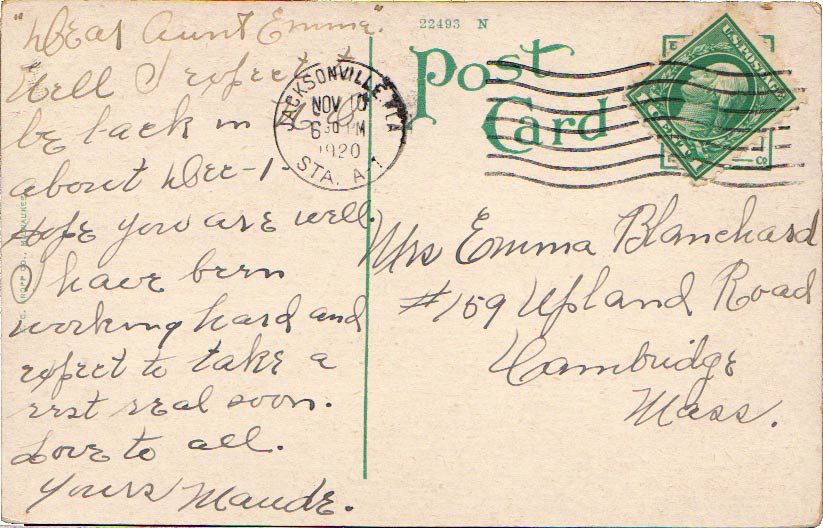 "Dear Aunt Emma."
Well I expect to
be back in
about Dec-1-
Hope you are well.
I have been
working hard and
expect to take a
rest real soon.
Love to all.
Yours Maude.
22493 N
Post
Card
JACKSONVILLE, FLA
NOV 10
6 30 PM
1920
STA. A-1
U.S. POSTAGE
Mrs Emma Blanchard
#159 Upland Road
Cambridge
Mass.
KROPP CO., MILWAUKEE